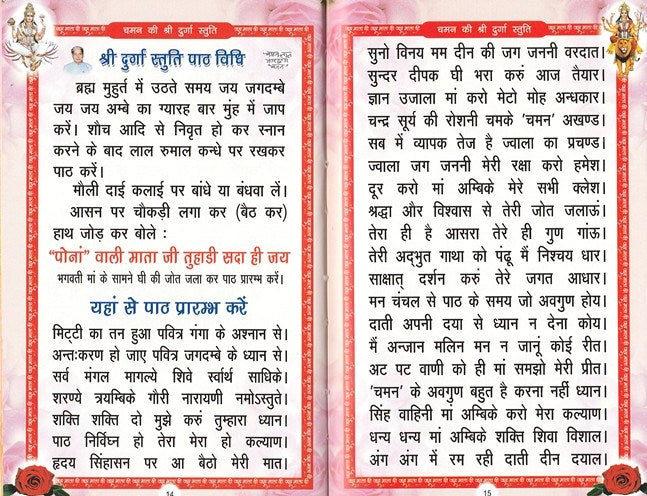 चमन की श्री दुर्गा स्तुति
श्री दुर्गा स्तुति पाठ विधि
ब्रह्म मुहुर्त में उठते समय जय जगदम्बे
जय जय अम्बे का ग्यारह बार मुंह में जाप
करें। शौच आदि से निवृत हो कर स्नान
करने के बाद लाल रुमाल कन्धे पर रखकर
पाठ करें।
मौली दाई कलाई पर बांधे या बंधवा लें।
आसन पर चौकड़ी लगा कर (बैठ कर)
हाथ जोड़ कर बोले :
“पोनां” वाली माता जी तुहाडी सदा ही जय
भगवती मां के सामने घी की जोत जला कर पाठ प्रारम्भ करें।
यहां से पाठ प्रारम्भ करें
मिट्टी का तन हुआ पवित्र गंगा के अश्नान से।
अन्तःकरण हो जाए पवित्र जगदम्बे के ध्यान से।
सर्व मंगल मागल्ये शिवे स्वार्थ साधिके।
शरण्ये त्रयम्बिके गौरी नारायणी नमोऽस्तुते।
शक्ति शक्ति दो मुझे करुं तुम्हारा ध्यान।
पाठ निर्विघ्न हो तेरा मेरा हो कल्याण।
हृदय सिंहासन पर आ बैठो मेरी मात।
14
चमन की श्री दुर्गा स्तुति
सुनो विनय मम दीन की जग जननी वरदात।
सुन्दर दीपक घी भरा करुं आज तैयार।
ज्ञान उजाला मां करो मेटो मोह अन्धकार।
चन्द्र सूर्य की रोशनी चमके ‘चमन’ अखण्ड।
सब में व्यापक तेज है ज्वाला का प्रचण्ड।
ज्वाला जग जननी मेरी रक्षा करो हमेश।
दूर करो मां अम्बिके मेरे सभी क्लेश।
श्रद्धा और विश्वास से तेरी जोत जलाऊं।
तेरा ही है आसरा तेरे ही गुण गांऊ।
तेरी अद्भुत गाथा को पंढू मैं निश्चय धार।
साक्षात् दर्शन करुं तेरे जगत आधार।
मन चंचल से पाठ के समय जो अवगुण होय।
दाती अपनी दया से ध्यान न देना कोय।
मैं अन्जान मलिन मन न जानूं कोई रीत।
अट पट वाणी को ही मां समझो मेरी प्रीत।
‘चमन’ के अवगुण बहुत है करना नहीं ध्यान।
सिंह वाहिनी मां अम्बिके करो मेरा कल्याण।
धन्य धन्य मां अम्बिके शक्ति शिवा विशाल।
अंग अंग में रम रही दाती दीन दयाल।
15